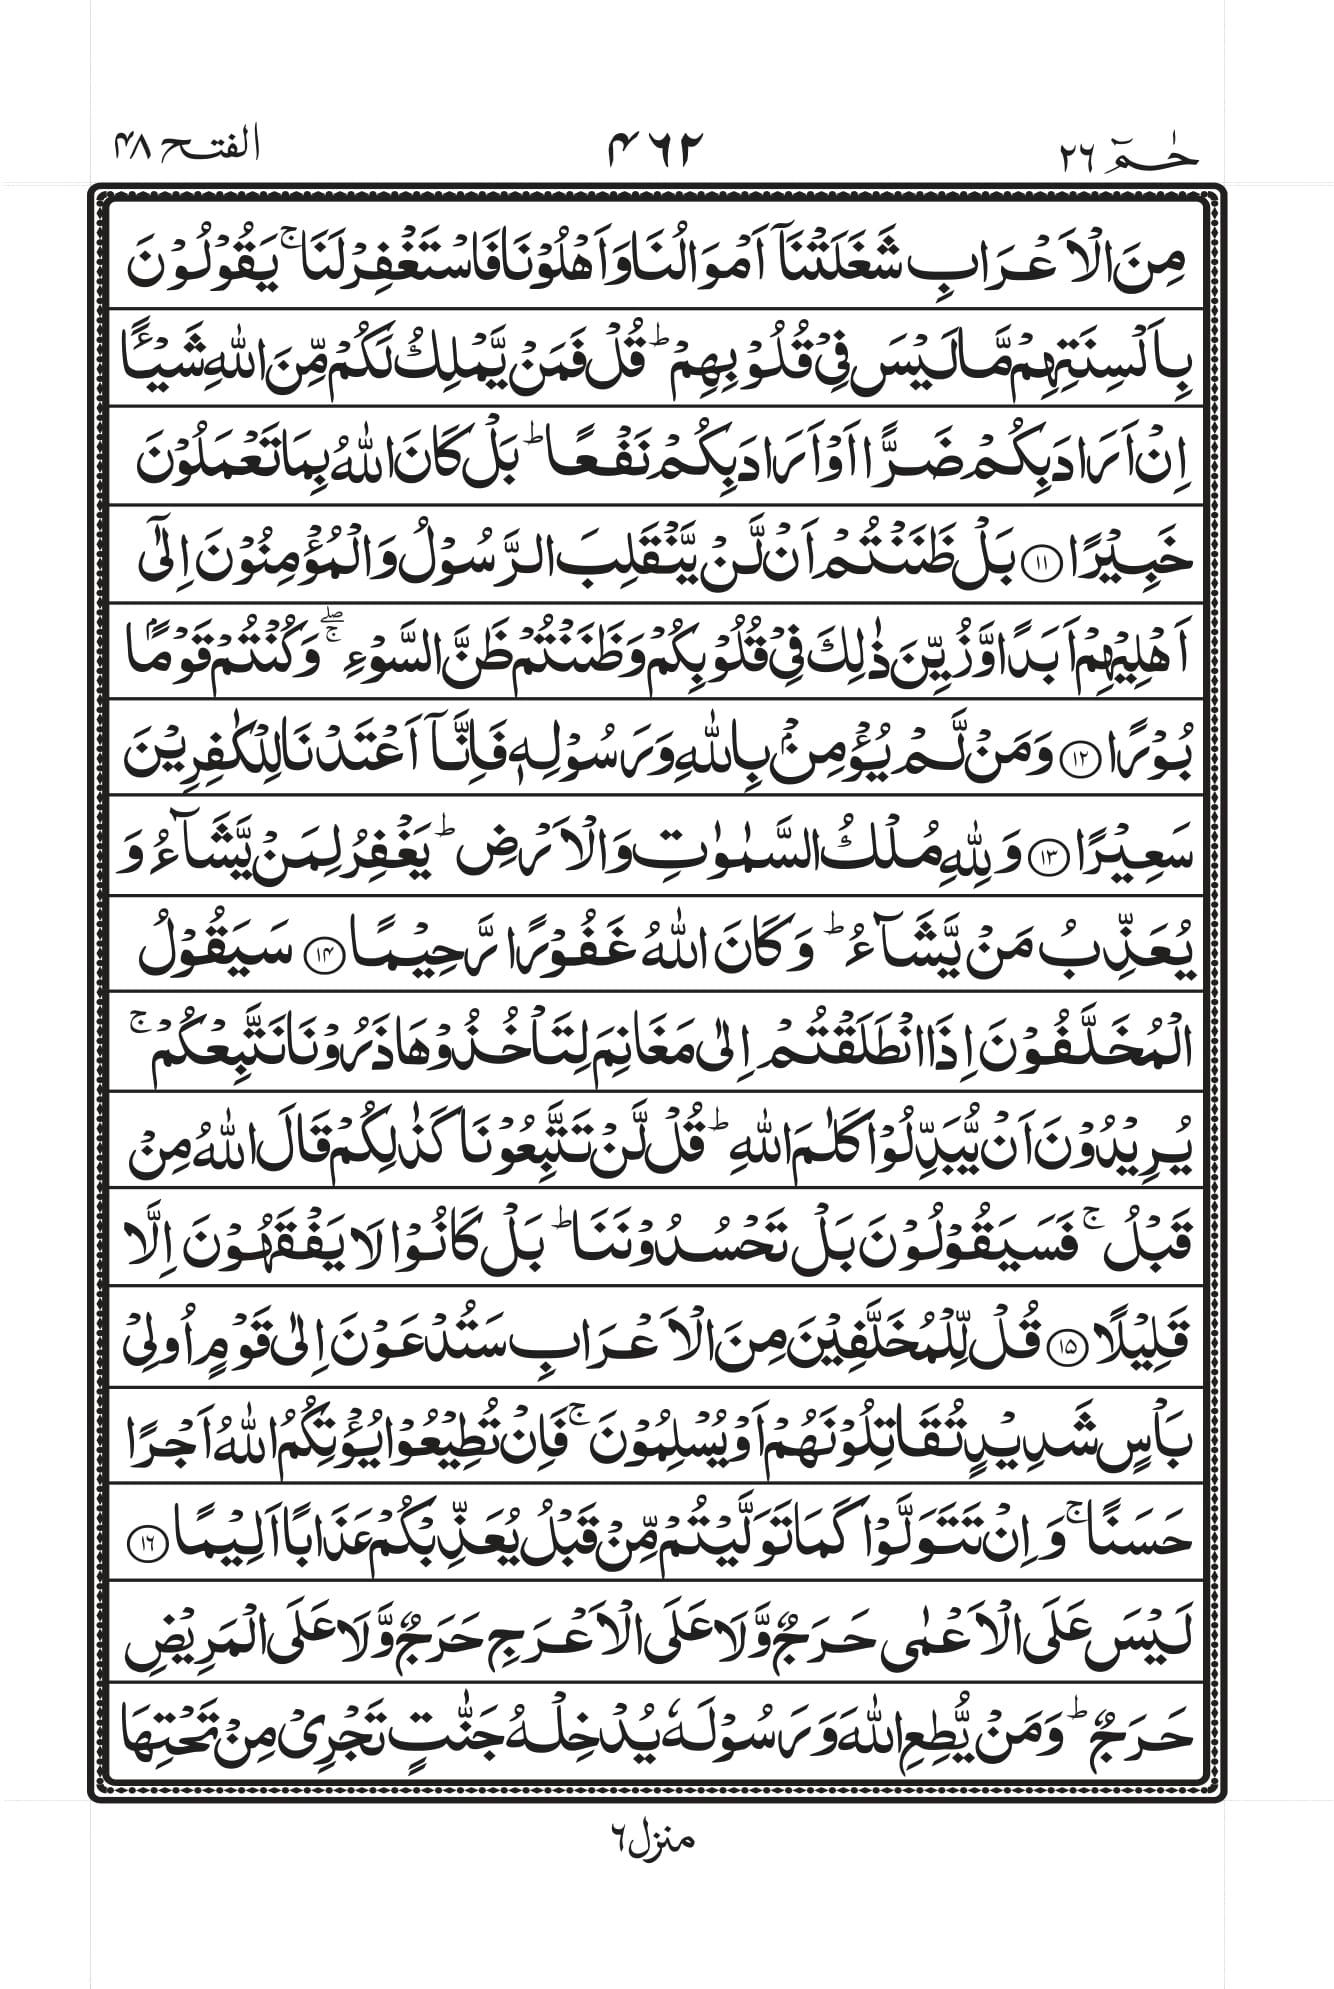 حٰـمٓ ۲۶
۴۶۲
الفتح ۴۸
مِنَ الۡاَعۡرَابِ شَغَلَتۡنَاۤ اَمۡوَالُنَا وَاَهۡلُوۡنَا فَاسۡتَغۡفِرۡ لَنَا ۚ يَقُوۡلُوۡنَ
بِاَلۡسِنَتِهِمۡ مَّا لَيۡسَ فِىۡ قُلُوۡبِهِمۡ ؕ قُلۡ فَمَنۡ يَّمۡلِكُ لَكُمۡ مِّنَ اللّٰهِ شَيۡـًٔـا
اِنۡ اَرَادَ بِكُمۡ ضَرًّا اَوۡ اَرَادَ بِكُمۡ نَفۡعًا ؕ بَلۡ كَانَ اللّٰهُ بِمَا تَعۡمَلُوۡنَ
خَبِيۡرًا ﴿۱۱﴾ بَلۡ ظَنَنۡتُمۡ اَنۡ لَّنۡ يَّنۡقَلِبَ الرَّسُوۡلُ وَالۡمُؤۡمِنُوۡنَ اِلٰٓى
اَهۡلِيۡهِمۡ اَبَدًا وَّزُيِّنَ ذٰلِكَ فِىۡ قُلُوۡبِكُمۡ وَظَنَنۡتُمۡ ظَنَّ السَّوۡءِ ۖۚ وَكُنۡتُمۡ قَوۡمًۢا
بُوۡرًا ﴿۱۲﴾ وَمَنۡ لَّمۡ يُؤۡمِنۡۢ بِاللّٰهِ وَرَسُوۡلِهٖ فَاِنَّاۤ اَعۡتَدۡنَا لِلۡكٰفِرِيۡنَ
سَعِيۡرًا ﴿۱۳﴾ وَلِلّٰهِ مُلۡكُ السَّمٰوٰتِ وَالۡاَرۡضِ ؕ يَغۡفِرُ لِمَنۡ يَّشَآءُ وَ
يُعَذِّبُ مَنۡ يَّشَآءُ ؕ وَكَانَ اللّٰهُ غَفُوۡرًا رَّحِيۡمًا ﴿۱۴﴾ سَيَقُوۡلُ
الۡمُخَلَّفُوۡنَ اِذَا انْطَلَقۡتُمۡ اِلٰى مَغَانِمَ لِتَاۡخُذُوۡهَا ذَرُوۡنَا نَتَّبِعۡكُمۡ ۚ
يُرِيۡدُوۡنَ اَنۡ يُّبَدِّلُوۡا كَلٰمَ اللّٰهِ ؕ قُلْ لَّنۡ تَتَّبِعُوۡنَا كَذٰلِكُمۡ قَالَ اللّٰهُ مِنۡ
قَبۡلُ ۚ فَسَيَقُوۡلُوۡنَ بَلۡ تَحۡسُدُوۡنَنَا ؕ بَلۡ كَانُوۡا لَا يَفۡقَهُوۡنَ اِلَّا
قَلِيۡلًا ﴿۱۵﴾ قُلْ لِّلۡمُخَلَّفِيۡنَ مِنَ الۡاَعۡرَابِ سَتُدۡعَوۡنَ اِلٰى قَوۡمٍ اُولِىۡ
بَاۡسٍ شَدِيۡدٍ تُقَاتِلُوۡنَهُمۡ اَوۡ يُسۡلِمُوۡنَ ۚ فَاِنۡ تُطِيۡعُوۡا يُؤۡتِكُمُ اللّٰهُ اَجۡرًا
حَسَنًا ۚ وَاِنۡ تَتَوَلَّوۡا كَمَا تَوَلَّيۡتُمۡ مِّنۡ قَبۡلُ يُعَذِّبۡكُمۡ عَذَابًا اَلِيۡمًا ﴿۱۶﴾
لَيۡسَ عَلَى الۡاَعۡمٰى حَرَجٌ وَّلَا عَلَى الۡاَعۡرَجِ حَرَجٌ وَّلَا عَلَى الۡمَرِيۡضِ
حَرَجٌ ؕ وَمَنۡ يُّطِعِ اللّٰهَ وَرَسُوۡلَهٗ يُدۡخِلۡهُ جَنّٰتٍ تَجۡرِىۡ مِنۡ تَحۡتِهَا
منزل۶